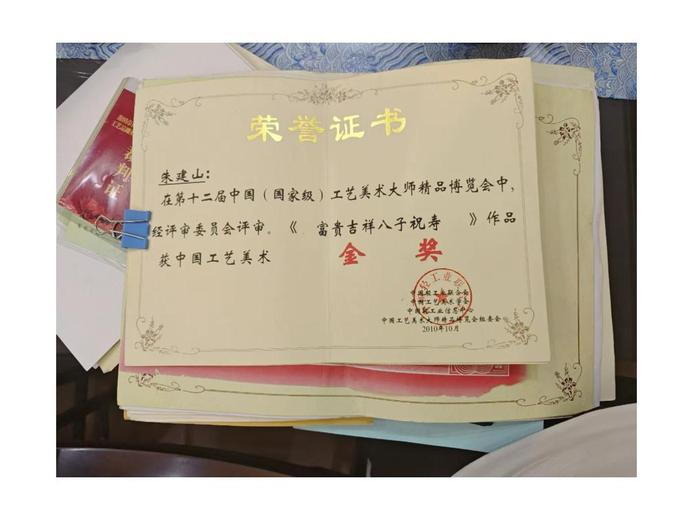 荣誉证书
朱建山：
在第十二届中国（国家级）工艺美术大师精品博览会中，
经评审委员会评审。《 富贵吉祥八子祝寿 》作品
获中国工艺美术 金 奖
中国轻工业联合会
中国工艺美术学会
中国轻工业信息中心
中国工艺美术大师精品博览会组委会
2010年10月